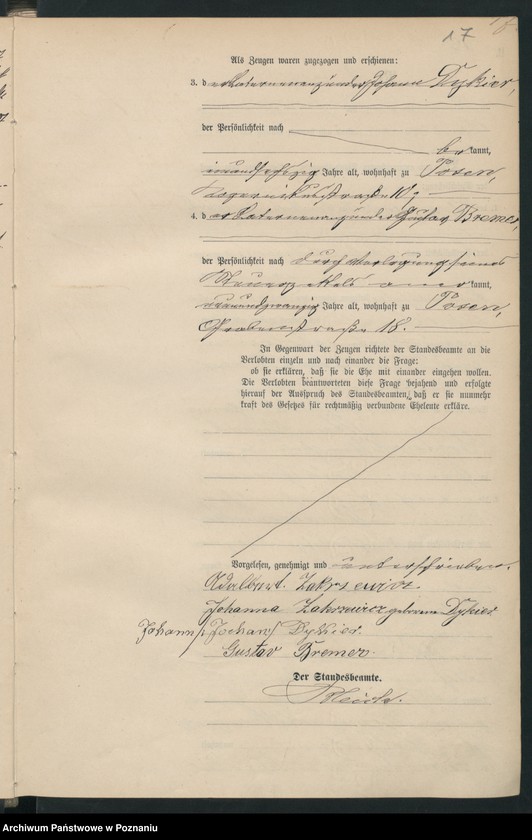 17
Als Zeugen waren zugezogen und erschienen:
3. der Laternenanzünder Johann Dykier,
der Persönlichkeit nach
bekannt,
Jahre alt, wohnhaft zu Posen,
4. der Laternenanzünder Gustav Bremer,
der Persönlichkeit nach durch Vorlegung seines
Steuerzettels anerkannt,
Jahre alt, wohnhaft zu Posen,
Grabenstraße 18.
In Gegenwart der Zeugen richtete der Standesbeamte an die
Verlobten einzeln und nach einander die Frage:
ob sie erklären, daß sie die Ehe mit einander eingehen wollen.
Die Verlobten beantworteten diese Frage bejahend und erfolgte
hierauf der Ausspruch des Standesbeamten, daß er sie nunmehr
kraft des Gesetzes für rechtmäßig verbundene Eheleute erkläre.
Vorgelesen, genehmigt und unterschrieben.
Adalbert Zakrzewicz.
Johanna Zakrzewicz geborene Dykier
Johann / Johann / Dykier.
Gustav Bremer.
Der Standesbeamte.
Archiwum Państwowe w Poznaniu